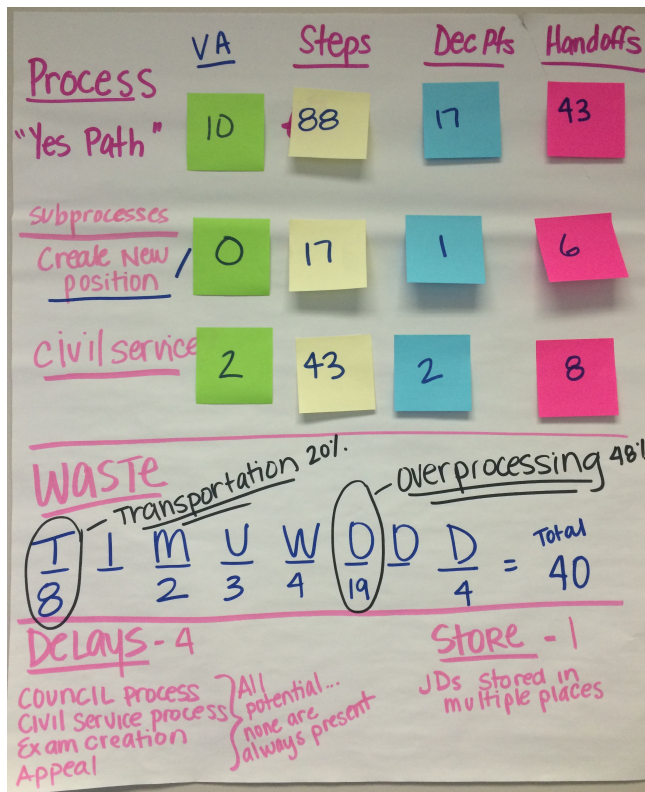 VA Steps Dec Pts Handoffs
Process
"Yes Path" 10 88 17 43
Subprocesses
Create New
position / 0 17 1 6
Civil service 2 43 2 8
Waste
Transportation 20%
Overprocessing 48%
T I M U W O O D = Total
8 2 3 4 19 4 40
Delays - 4
Store - 1
Council Process
Civil service process
Exam creation
Appeal
All
potential...
none are
always present
JDs stored in
multiple places